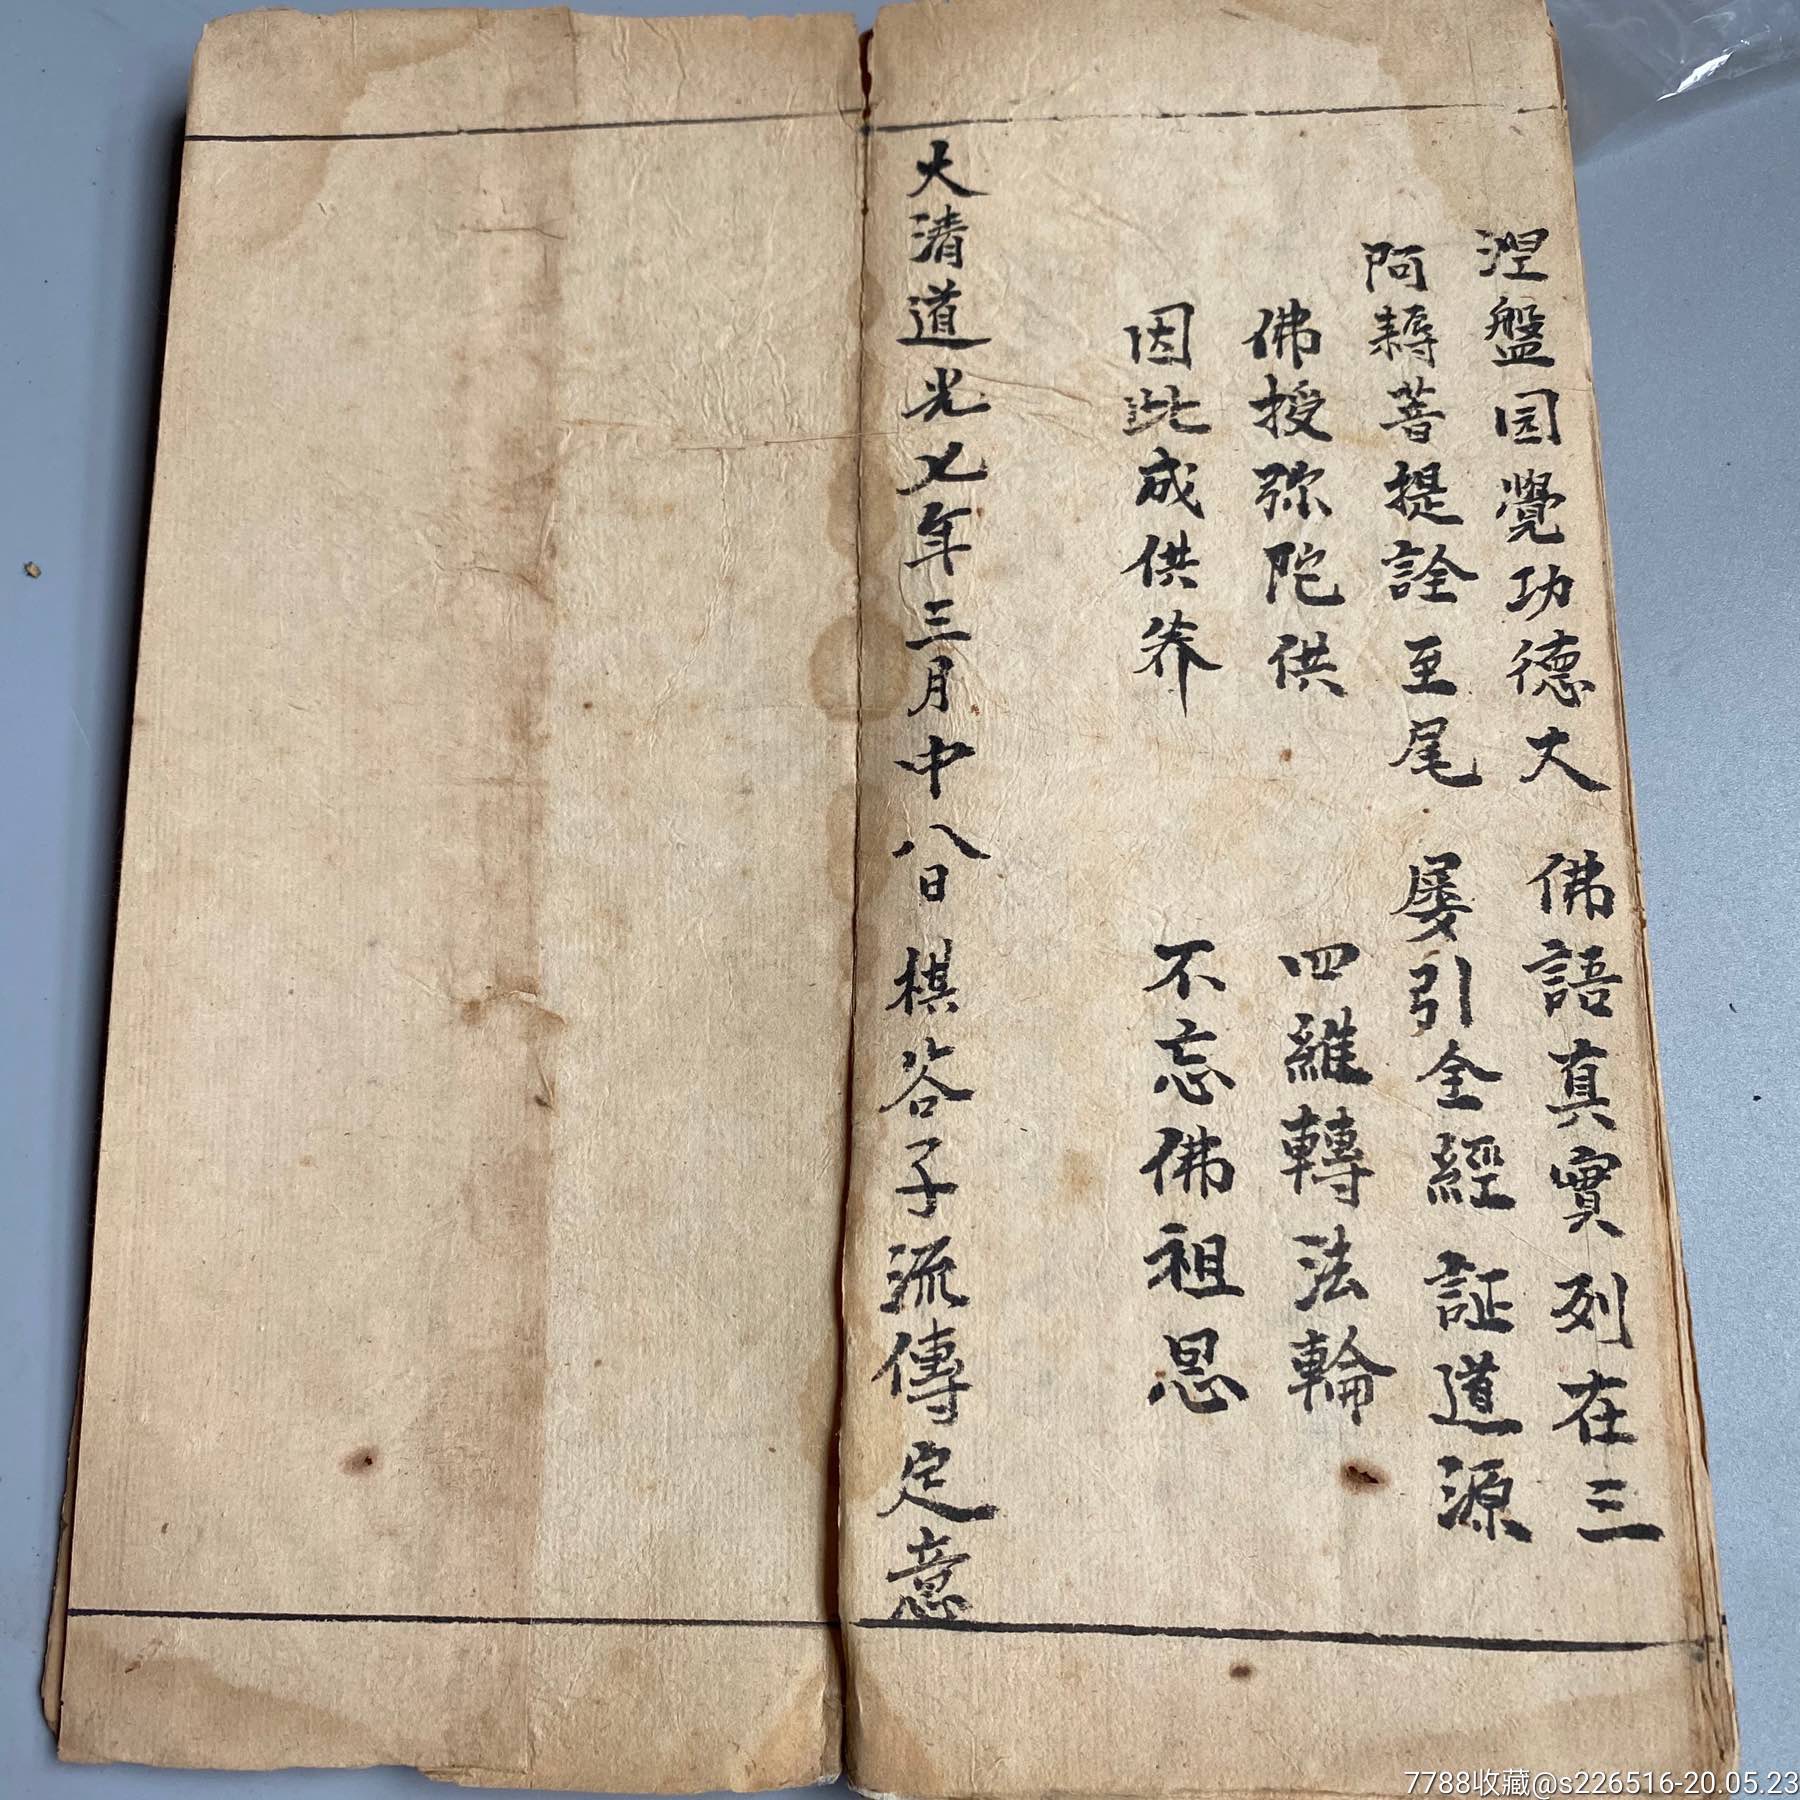 涅盤园覺功德大 佛語真實列在三
阿耨菩提詮至尾 屡引全經証道源
佛授弥陀供 四維轉法輪
因此成供养 不忘佛祖恩
大清道光七年三月中八日棋谷子流傳定意
7788收藏@s226516-20.05.23